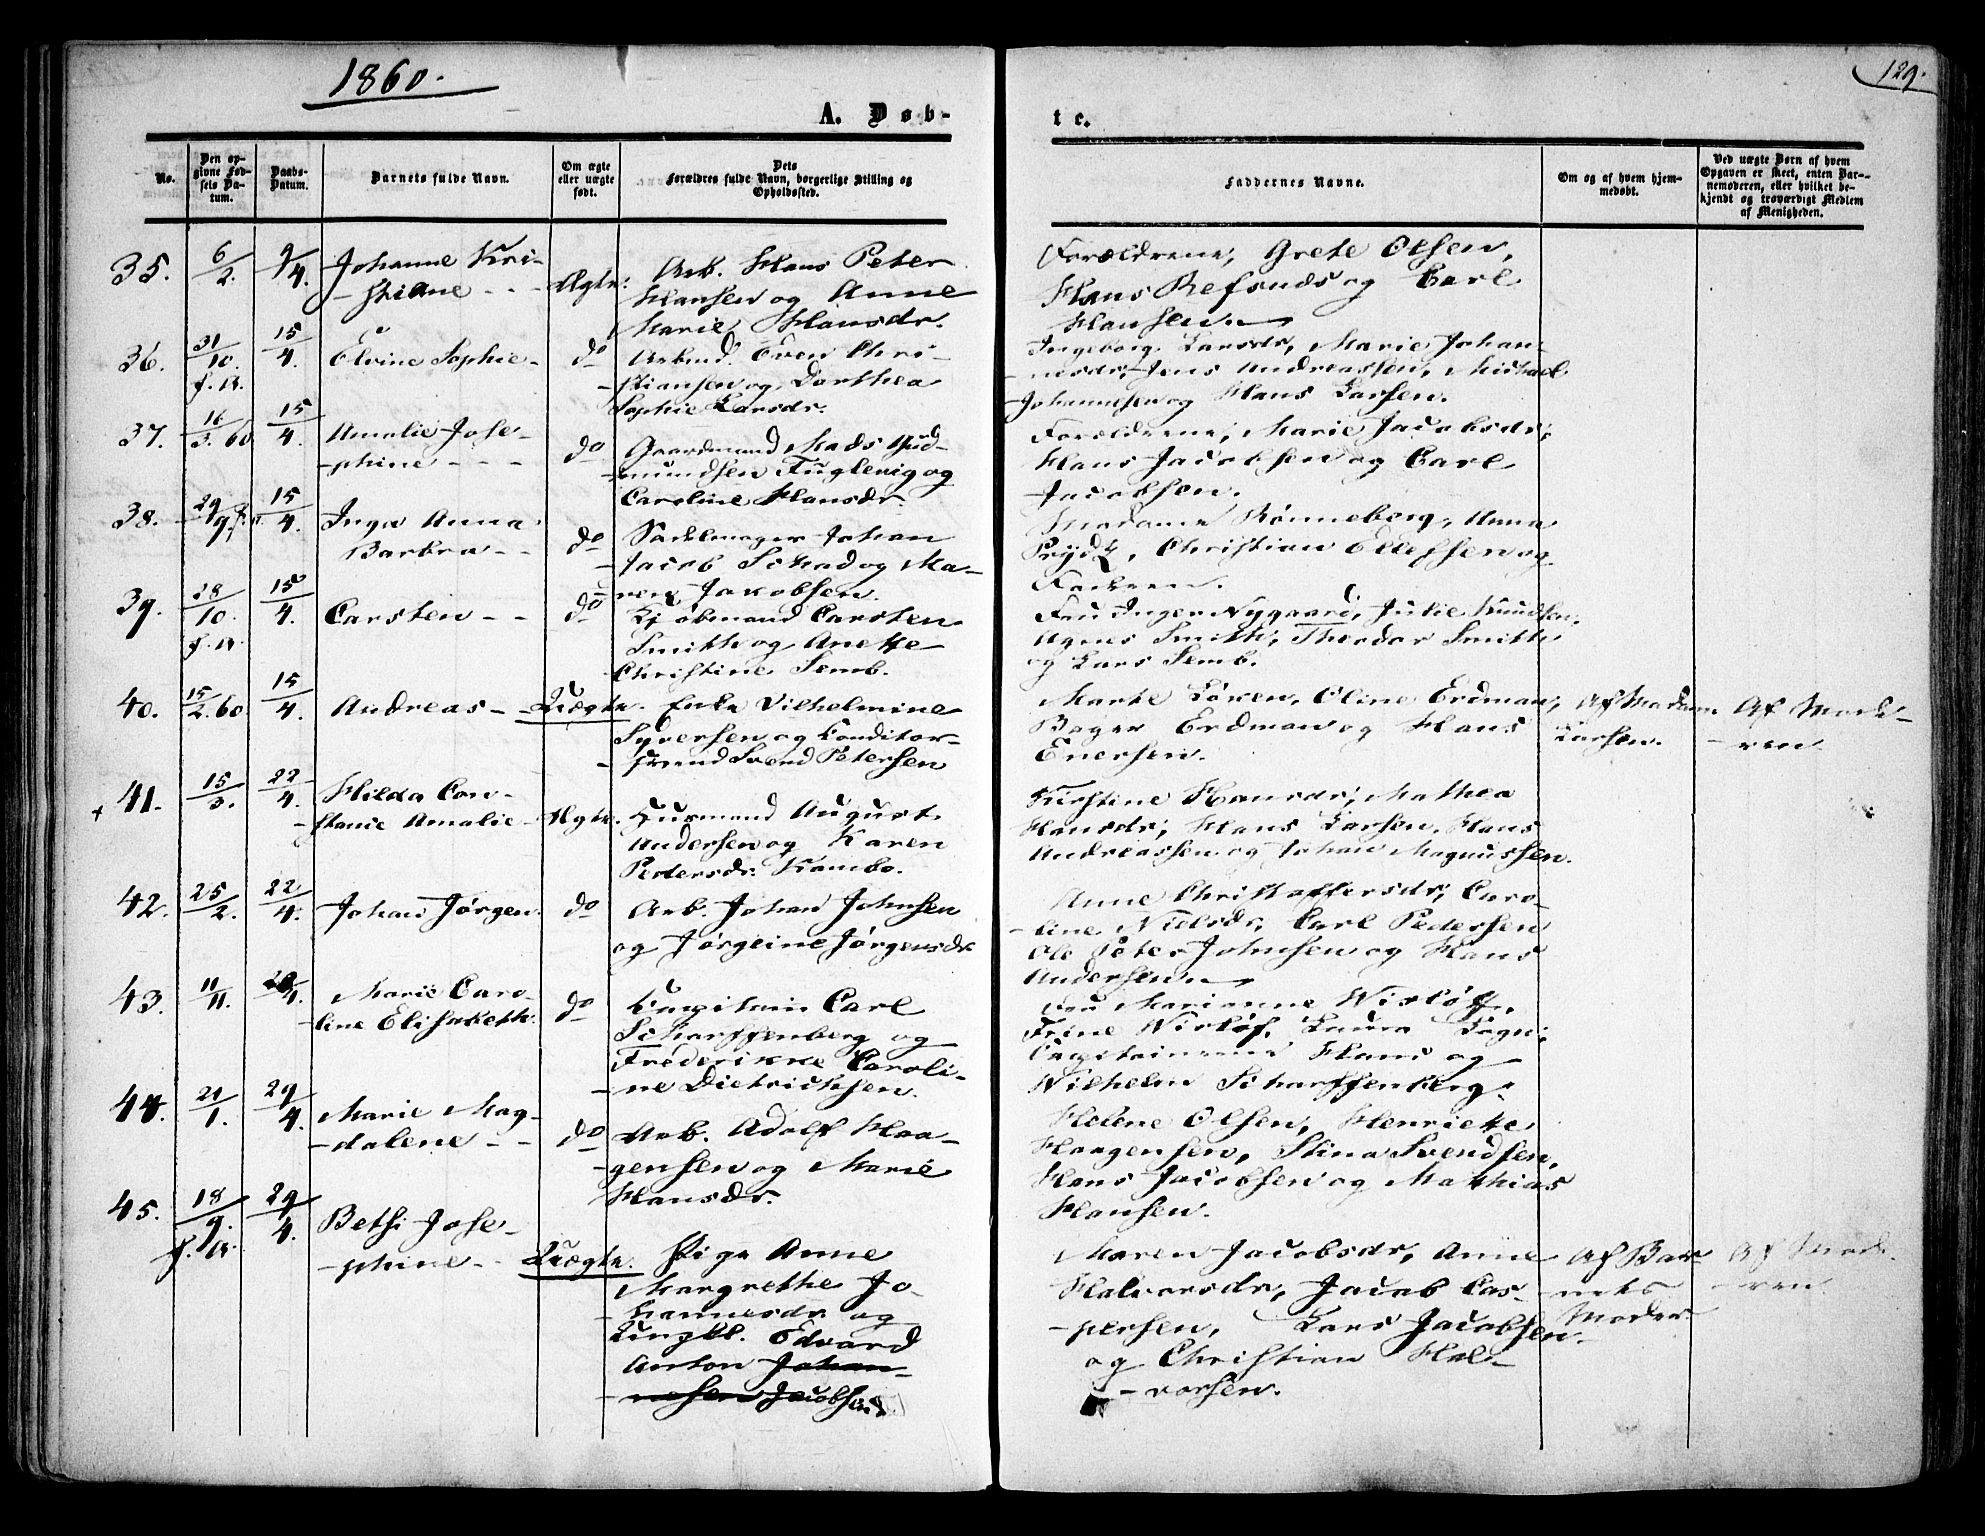 1860.
129.
A. Døb-
te.
No.
Den op-
givne Fød-
sels Da-
tum.
Daabs-
Datum.
Barnets fulde Navn.
Om ægte
eller uægte
født.
Dets
Forældres fulde Navn, borgerlige Stilling og
Opholdssted.
Faddernes Navne.
Om og af hvem hjem-
medøbt.
Ved uægte Børn af hvem
Opgaven er skeet, enten Bar-
nemoderen, eller hvilket be-
kjendt og troværdigt Medlem
af Menigheden.
35. 6/2. 9/4. Johanne Kri-
-stiane - - - Ægte.
Arb. Hans Peter
Hansen og Anne
Marie Hansdr.
Forældrene, Grete Olsen,
Hans Refsnes og Carl
Hansen.
36. 31/10 f. A. 15/4. Elvine Sophie - do
Arbmd. Even Chri-
-stiansen og Dorthea
Sophie Larsdr.
Ingeborg Larsdr, Marie Johan-
-nesdr, Jens Andreassen, Michael
Johannesen og Hans Larsen.
37. 16/3. 60 15/4. Amalie Jose-
-phine - - - do
Gaardmand Mads Gud-
-mundsen Fuglevig og
Caroline Hansdr.
Forældrene, Marie Jacobsdr,
Hans Jacobsen og Carl
Jacobsen.
38. 29/9 f. A. 15/4. Inga Anna
Barbra - - do
Sadelmager Johan
Jacob Schad og Ma-
-ren Jakobsen.
Madame Rønneberg, Anna
Prydz, Christian Ellefsen og
Faderen.
39. 28/10. f. A. 15/4. Carsten - - do
Kjøbmand Carsten
Smith og Anette
Christine Semb.
Fru Inger Nygaard, Julie Knudsen,
Agnes Smith, Theodor Smith
og Lars Semb.
40. 15/2. 60 15/4. Andreas - Uægte.
Enke Vilhelmine
Syversen og Conditor-
-svend Svend Petersen
Marte Løken, Oline Erdman,
Bager Erdman og Hans
Enersen.
Af Madam
Larsen.
Af Mode-
-ren
+ 41. 15/3. 22/4. Hilda Con-
-stance Amalie - Ægte.
Husmand August
Andersen og Karen
Pedersdr. Kambo.
Kirstine Hansdr, Mathea
Hansdr, Hans Larsen, Hans
Andreassen og Johan Magnussen.
42. 25/2. 22/4. Johan Jørgen. do
Arb. Johan Johnsen
og Jørgine Jørgensdr
Anne Christoffersdr, Caro-
-line Nielsdr, Carl Pedersen
Ole Peter Johnsen og Hans
Andersen
43. 11/11. Marie Caro-
-line Elisabeth. do
Capitain Carl
Scharffenberg og
Frederikke Caroli-
-ne Dietrichsen.
Fru Marianne Wisløff,
Trine Wisløf, Laura
Capitainerne Hans og
Wilhelm Scharffenberg.
44. 21/1. 29/4. Marie Mag-
-dalene - - do
Arb. Adolf Haa-
-gensen og Marie
Hansdr.
Helene Olsen, Henriette
Haagensen, Stina Svendsen,
Hans Jacobsen og Mathias
Hansen.
45. 18/9. f. A. 29/4. Bethi Jose-
-phine - - Uægte.
Pige Anne
Margrethe Jo-
-hannesdr og
Ungkl. Edvard
Anton Johan-
-nesen Jacobsen
Maren Jacobsdr, Anne
Halvorsdr, Jacob Cas-
-persen, Lars Jacobsen
og Christian Hal-
-vorsen.
Af Bar-
-nets
Moder.
Af Mode-
-ren